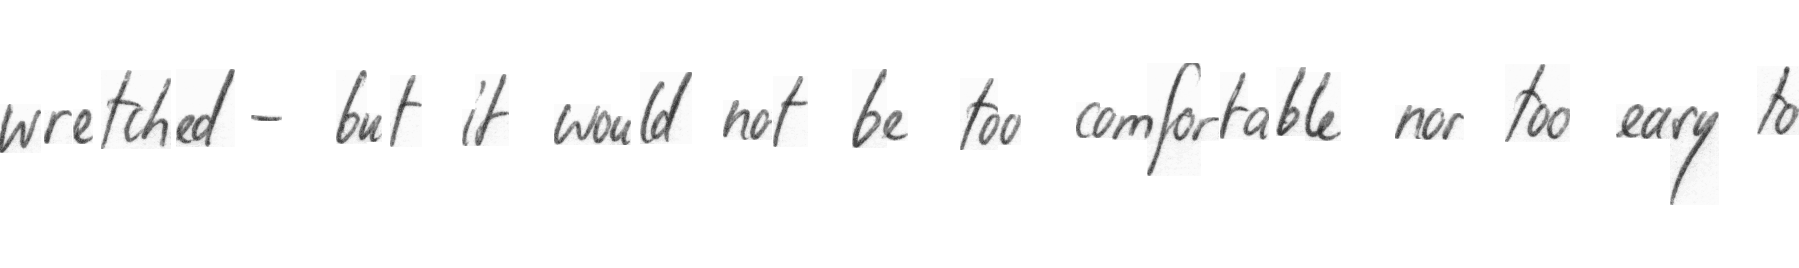 wretched - but it would not be too comfortable nor too easy to